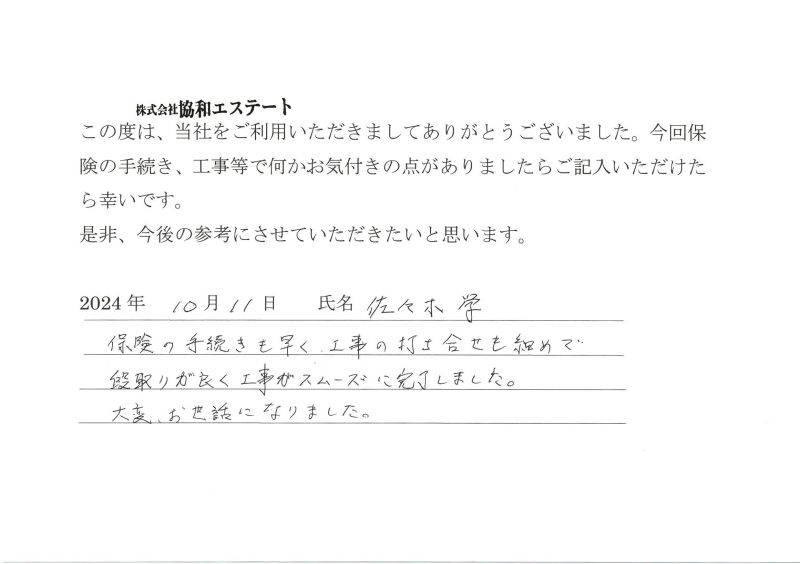 株式会社協和エステート
この度は、当社をご利用いただきましてありがとうございました。今回保
険の手続き、工事等で何かお気付きの点がありましたらご記入いただけた
ら幸いです。
是非、今後の参考にさせていただきたいと思います。
2024年 10月11日 氏名 佐々木学
保険の手続きも早く、工事の打ち合せも細めで
段取りが良く工事がスムーズに完了しました。
大変、お世話になりました。